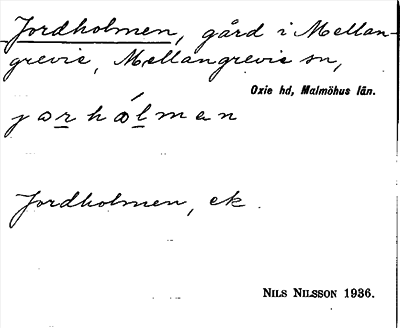 Jordholmen, gård i Mellan-
grevie, Mellangrevie sn,
Oxie hd, Malmöhus län.
Jordholmen, ek.
NILS NILSSON 1936.